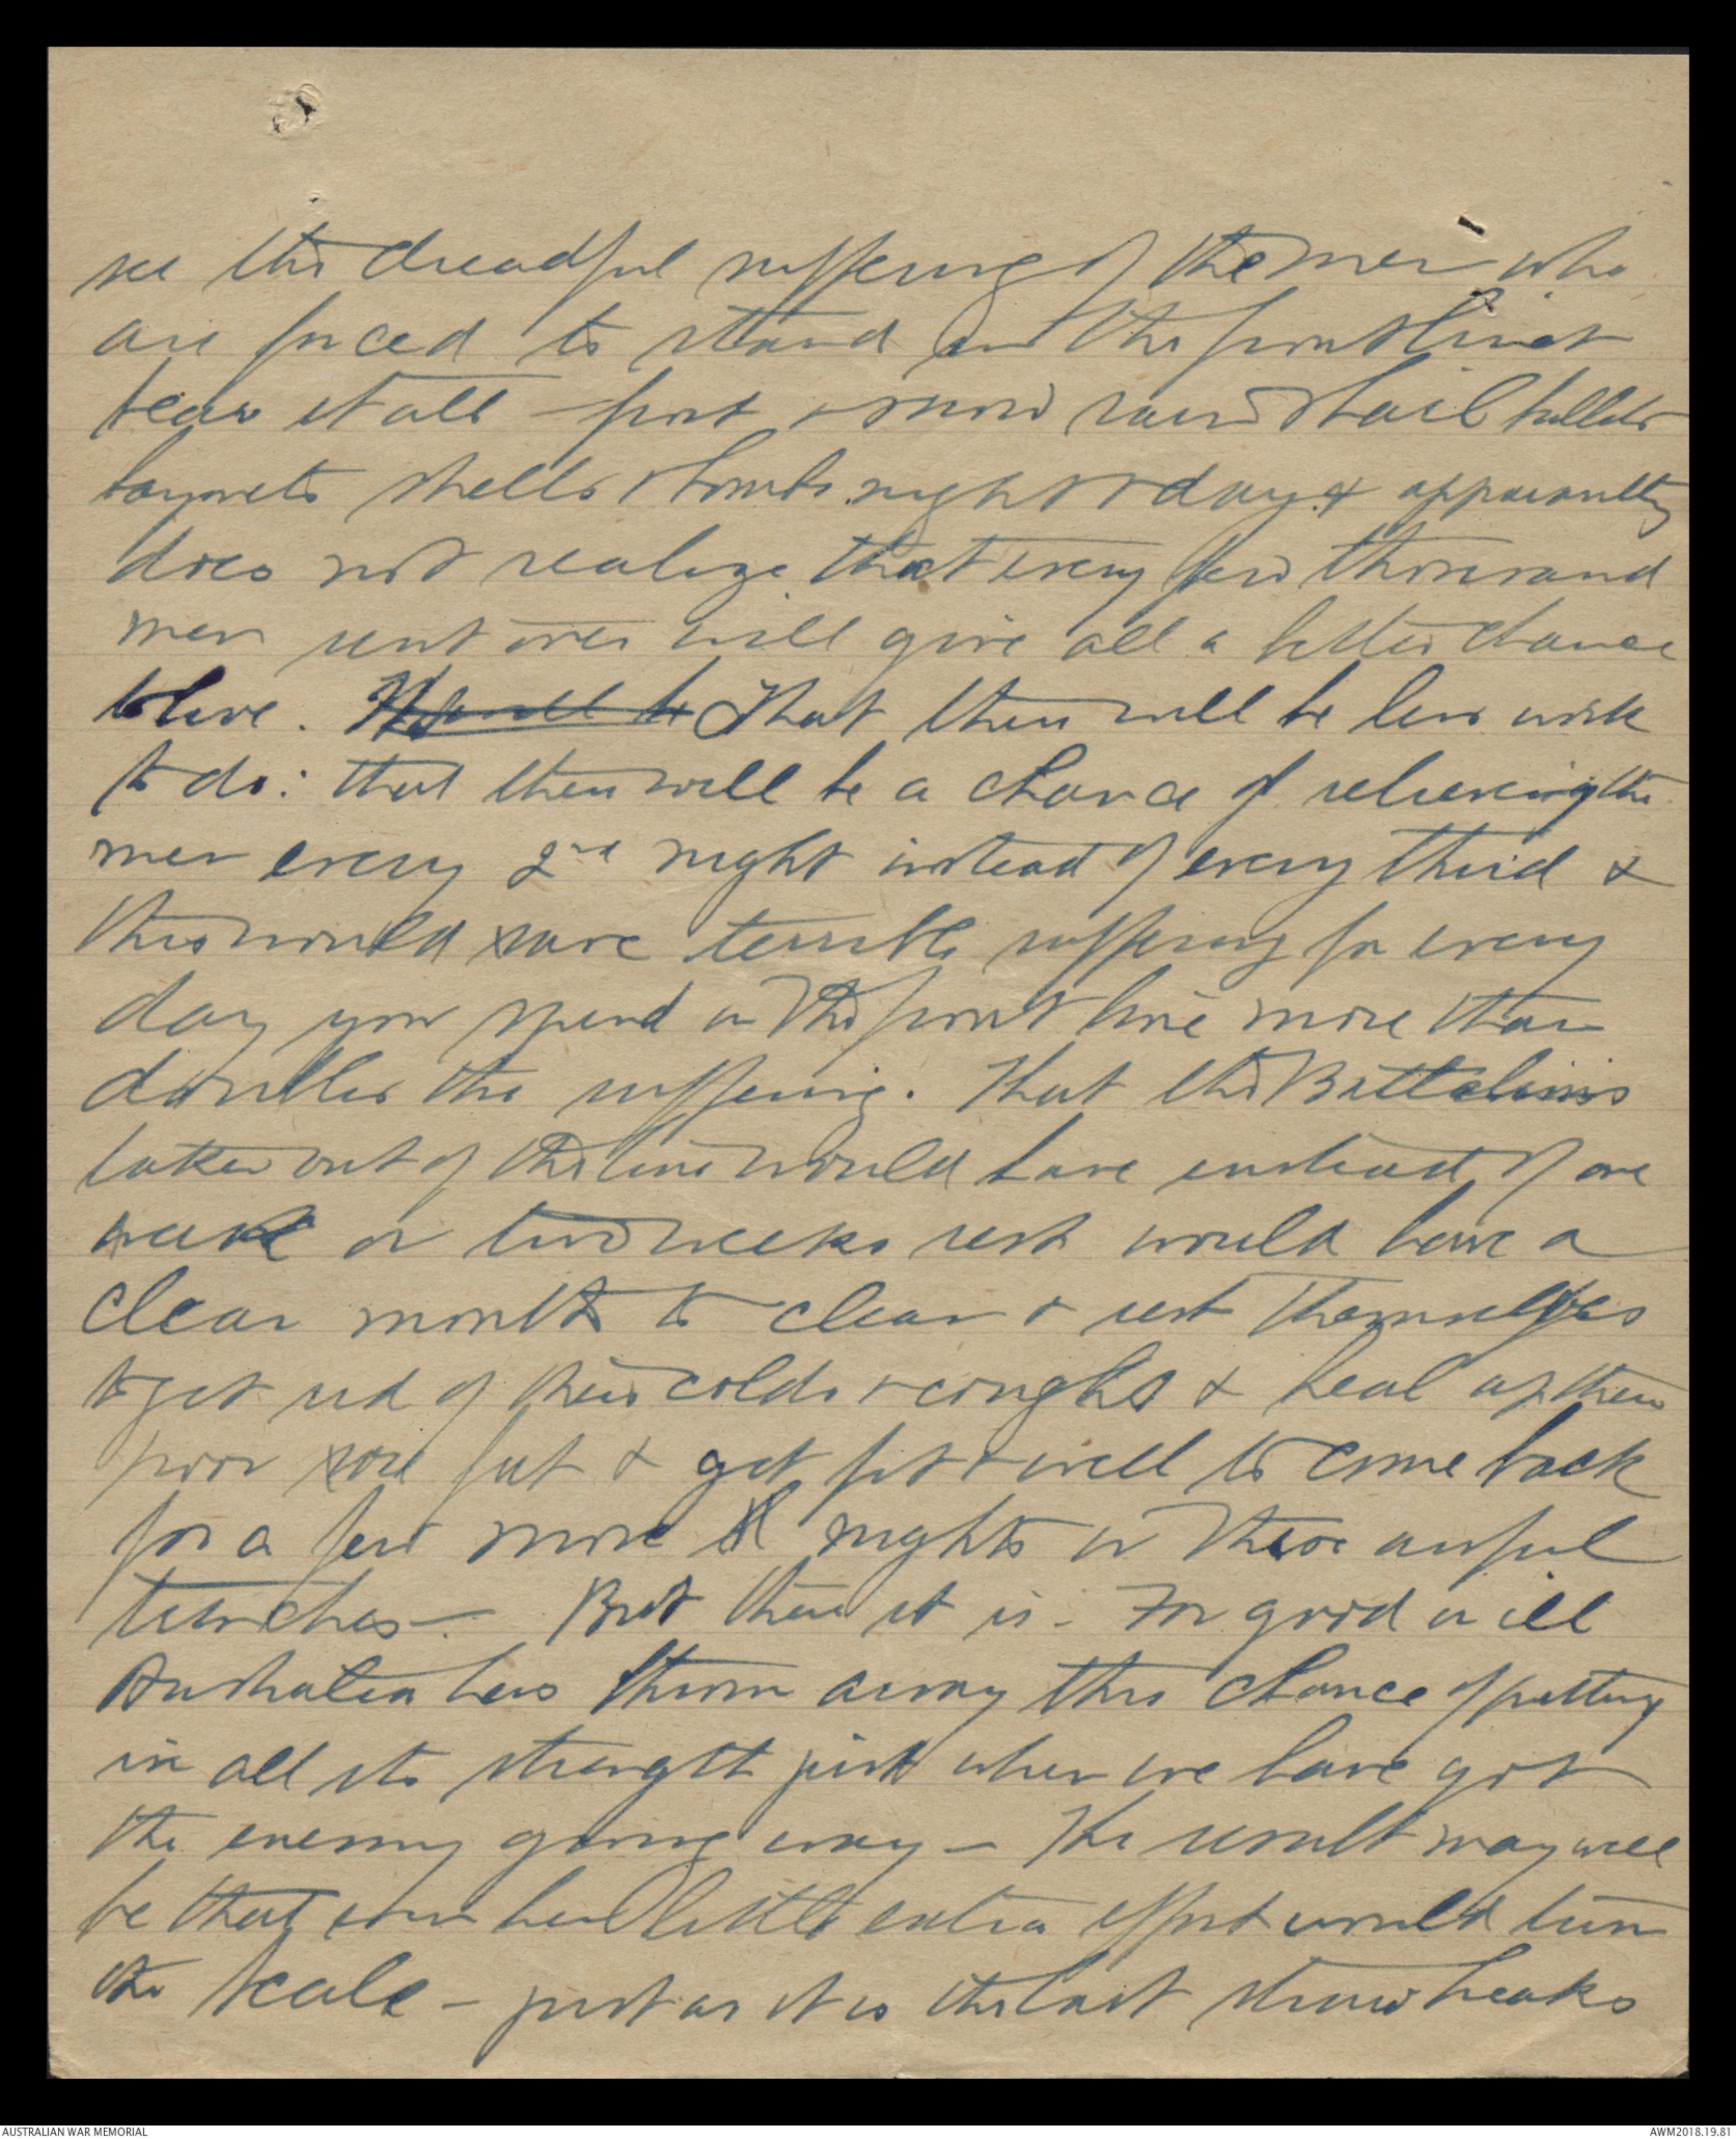 see the dreadful suffering of the men who
are forced to stand in the front line &
bear it all – frost & snow rain & hail bullets
bayonets shells & bombs night & day & apparently
does not realize that every few thousand
men sent over will give all a better chance
to live. It will be That there will be less work
to do: that there will be a chance of relieving the
men every 2nd night instead of every third &
this would save terrible suffering for every
day you spend in the front line more than
doubles the suffering. That the Battalions
taken out of the line would have instead of one
week or two weeks rest would have a
clear month to clean & rest themselves
to get rid of their colds & coughs & heal up their
poor sore feet & get fit & well to come back
for a few more nights in these awful
trenches – But there it is – For good or ill
Australia has thrown away this chance of putting
in all its strength just when we have got
the enemy giving way – The result may well
be that even her little extra effort would turn
the scale – just as it is the last straw breaks
AUSTRALIAN WAR MEMORIAL
AWM2018.19.81